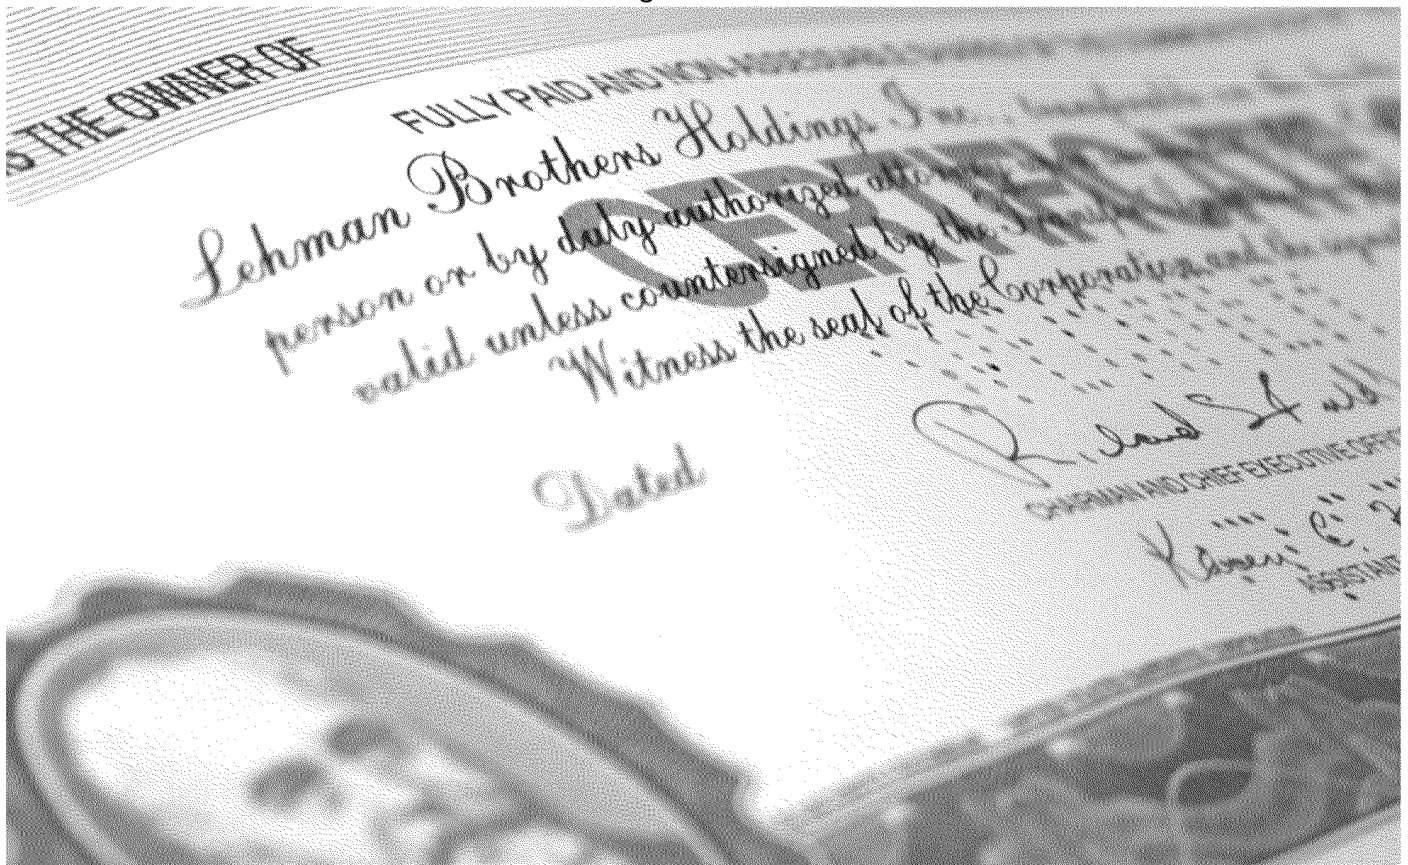 S THE OWNER OF
FULLY PAID AND NON-ASSESSABLE
Lehman Brothers Holdings Inc.,
person or by duly authorized attorney
valid unless countersigned by the Transfer
Witness the seal of the Corporation and the
Dated
CERTIFICATE
CHAIRMAN AND CHIEF EXECUTIVE OFFIC
ASSISTANT